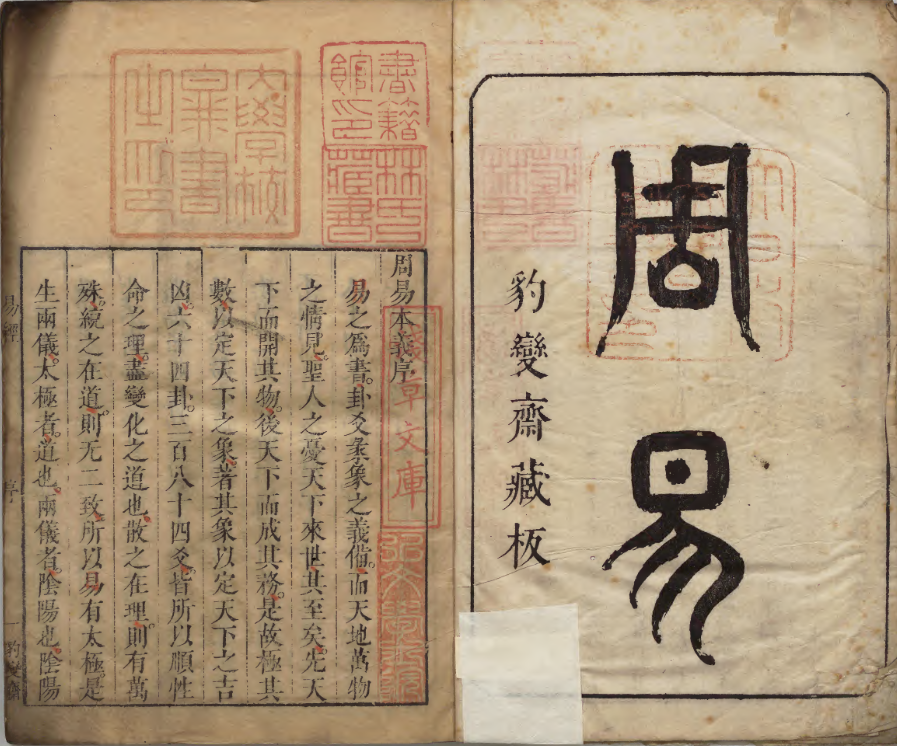 周易
豹變齋藏板
周易本義序
易之爲書卦爻彖象之義備而天地萬物
之情見聖人之憂天下來世其至矣先天
下而開其物後天下而成其務是故極其
數以定天下之象著其象以定天下之吉
凶六十四卦三百八十四爻皆所以順性
命之理盡變化之道也散之在理則有萬
殊統之在道則无二致所以易有太極是
生兩儀太極者道也兩儀者陰陽也陰陽
易經
序
一
大學校
業書
之印
書籍
館印
林氏
藏書
草文庫